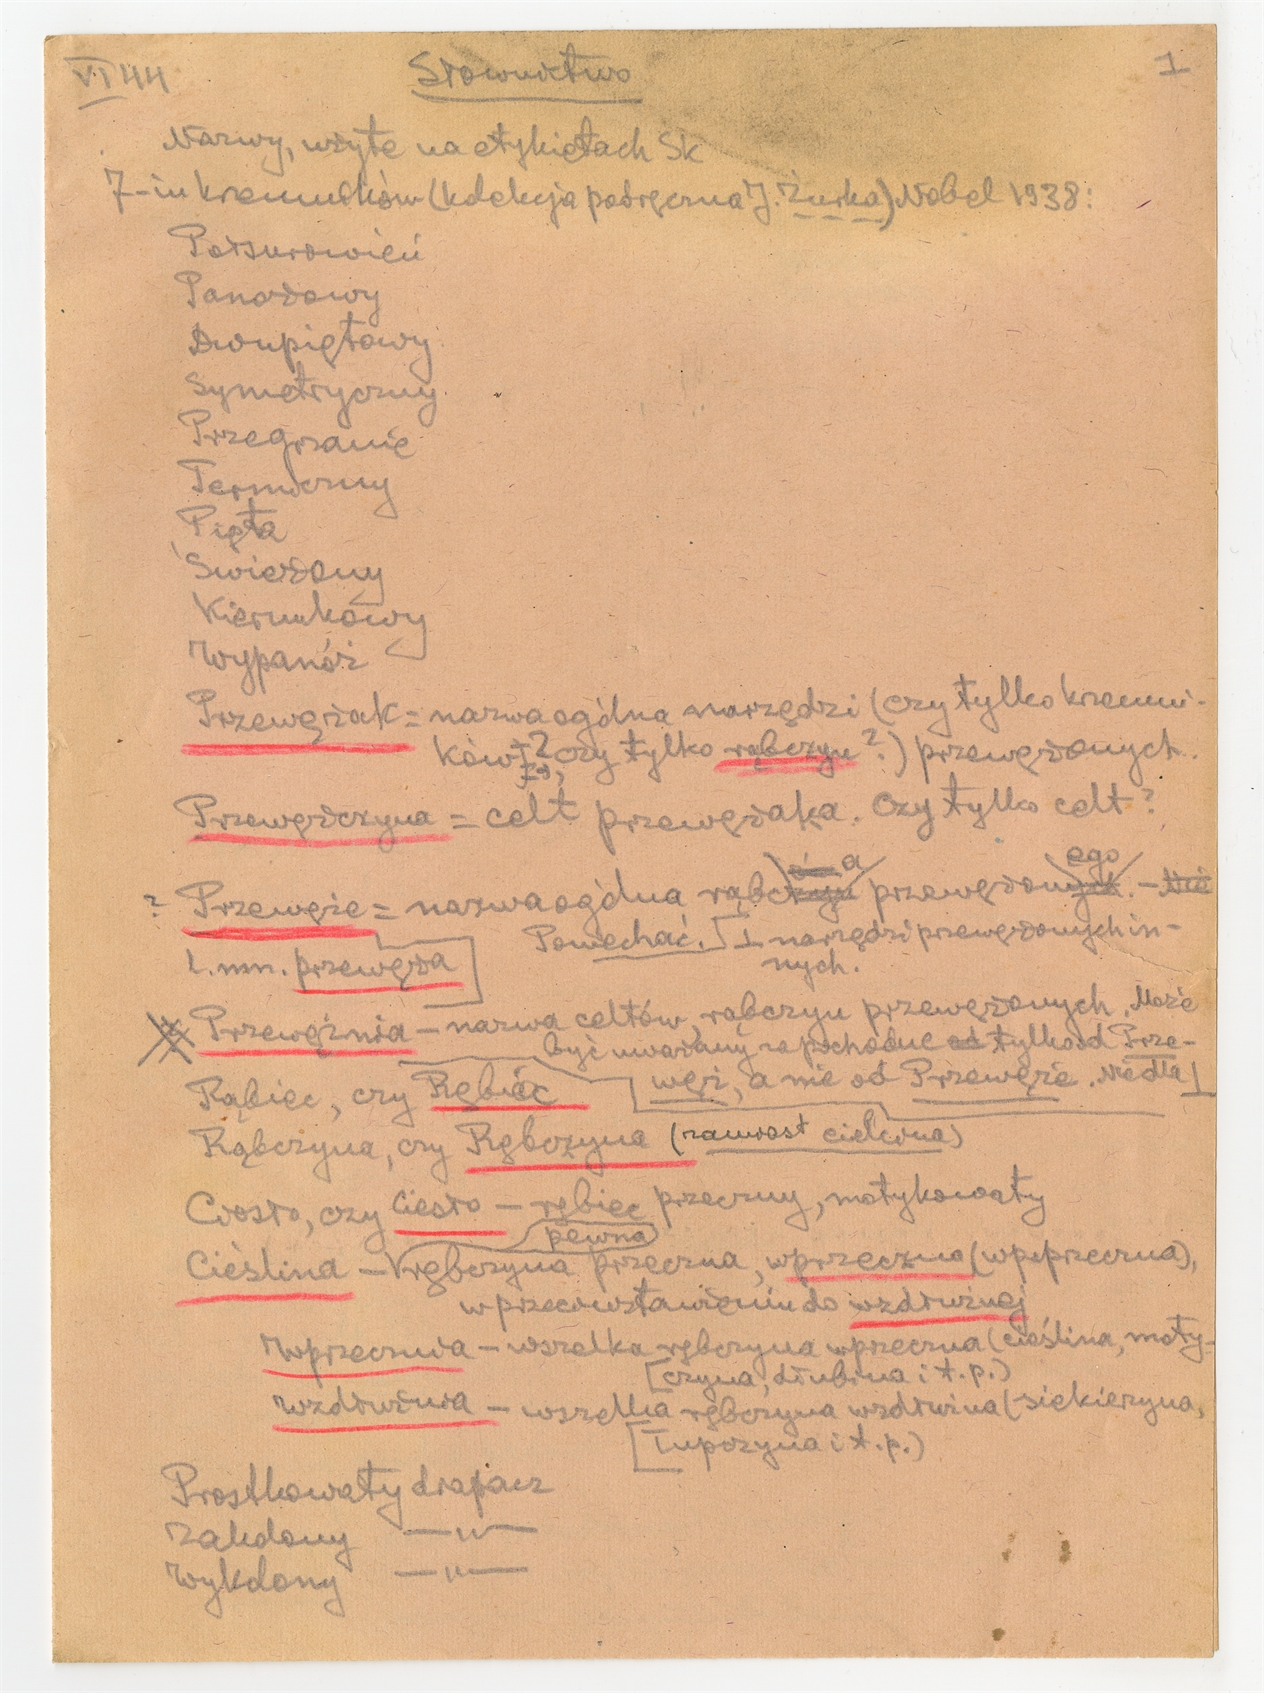 VI 44 Słownictwo 1
Nazwy, użyte na etykietach Sk
7-iu krzemuków (kolekcja podręczna J. Żurka) Nobel 1938:
Potsurowień
Panodowy
Dwupiętowy
Symetryczny
Przegrzanie
Termiczny
Pięta
Świeżony
Kierunkowy
Wypanóż
Przewężak = nazwa ogólna narzędzi (czy tylko krzemui-
ków?, czy tylko rąbczyn?) przewężonych.
Przewężczyna = celt przewężaka. Czy tylko celt?
a ego
? Przewęże = nazwa ogólna rąbczyn przewężonych. – Nie
Poniechać. narzędzi przewężonych in-
l. mn. przewęża nych.
Przewęźnia – nazwa celtów, rąbczyn przewężonych. Może
być uważany za pochodne od tylko od Prze-
węż, a nie od Przewęże. Nie dla
Rąbiec, czy Rębiec
Rąbczyna, czy Rębczyna (zamiast cielcrna)
Ciosto, czy Ciesto – rębiec przeczny, motykowaty
pewna
Cieślina – rębczyna przeczna, wprzeczna (wpoprzeczna),
w przeciwstawieniu do wzdłużnej
Wprzecznia – wszelka rębczyna wprzeczna (cieślina, moty-
czyna, dłubina i t.p.)
Wzdłużnia – wszelka rębczyna wzdłużna (siekierzyna,
łupczyna i t.p.)
Prostkowaty drapacz
Zakolony —"—
Wyklony —"—